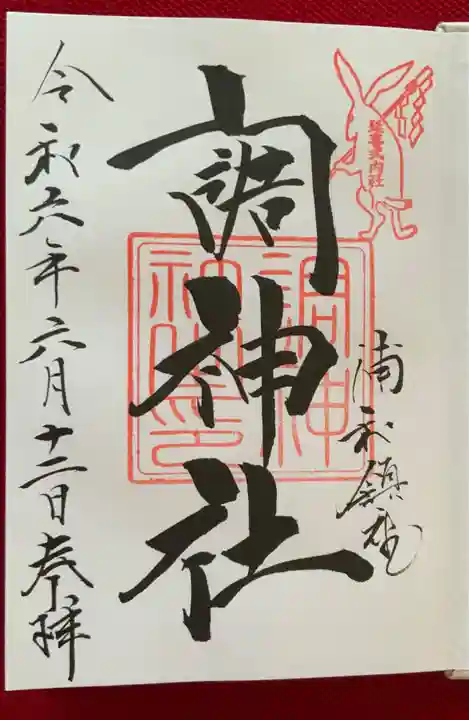 延喜式内社
浦和鎮座
調神社
調神社印
令和六年六月十二日奉拝